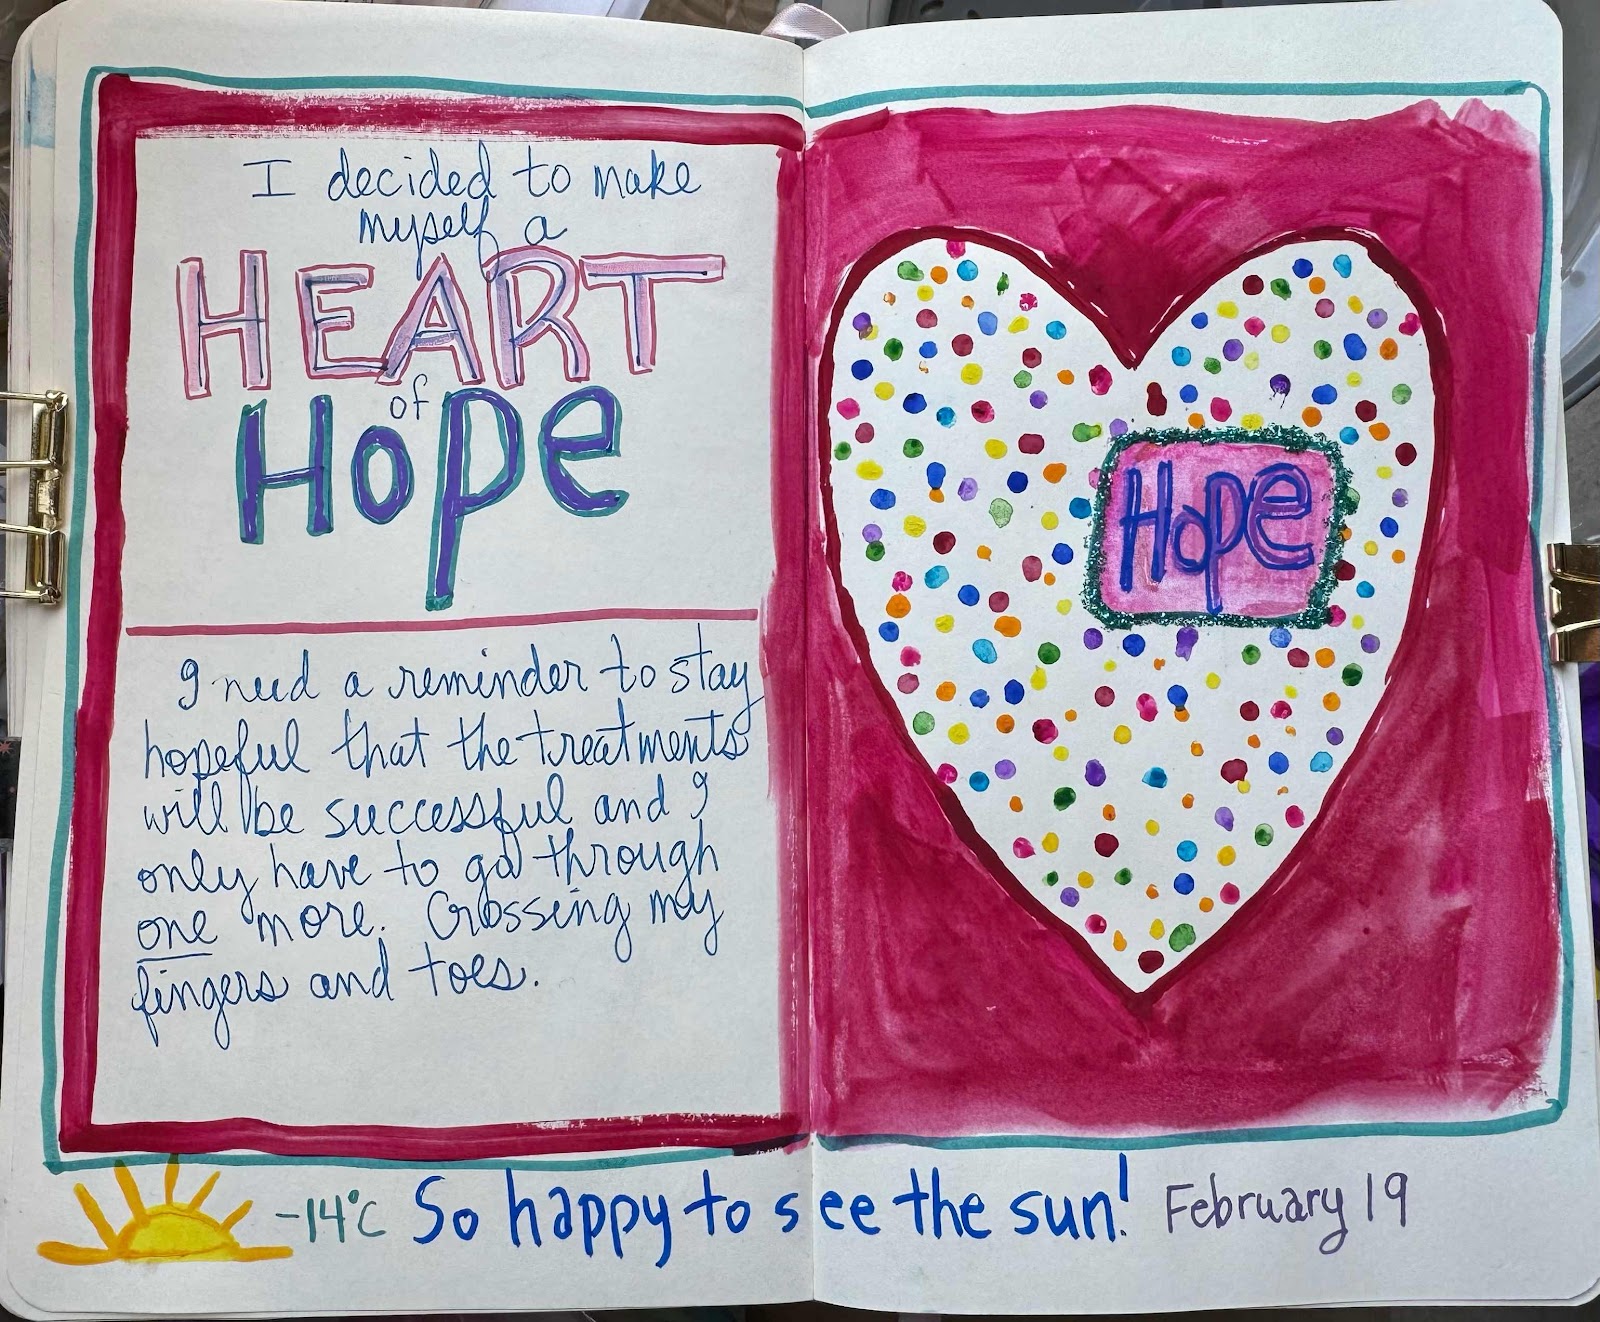 I decided to make
myself a
HEART
of
Hope
I need a reminder to stay
hopeful that the treatments
will be successful and I
only have to go through
one more. Crossing my
fingers and toes.
Hope
-14°C So happy to see the sun! February 19